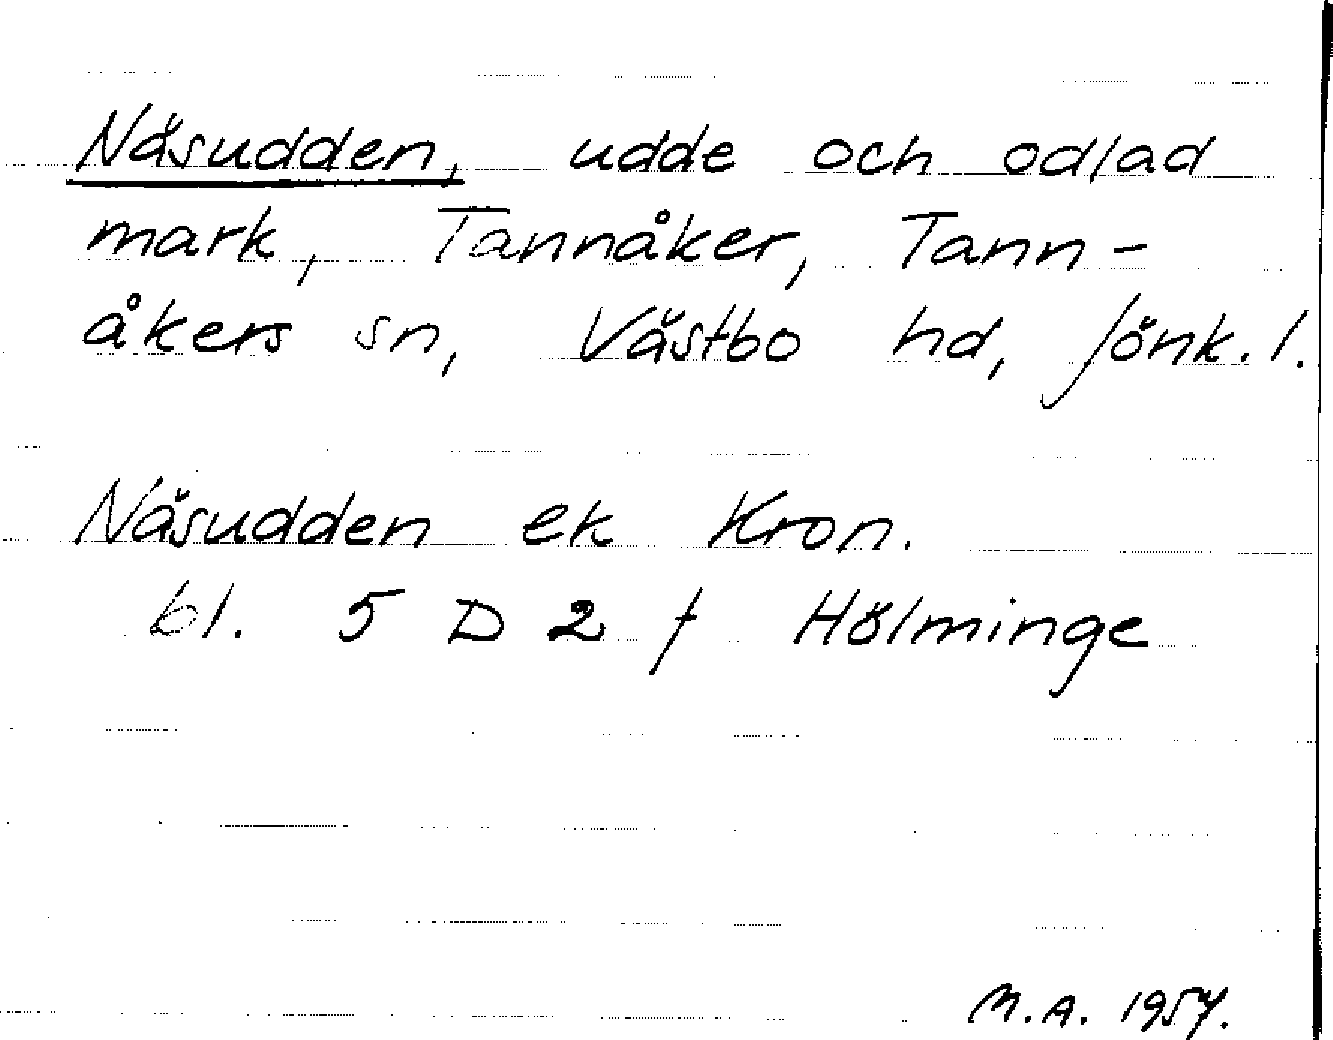 Näsudden, udde och odlad
mark, Tannåker, Tann-
åkers sn, Västbo hd, Jönk. l.
Näsudden ek Kron.
bl. 5 D 2 f Hölminge
M.A. 1957.